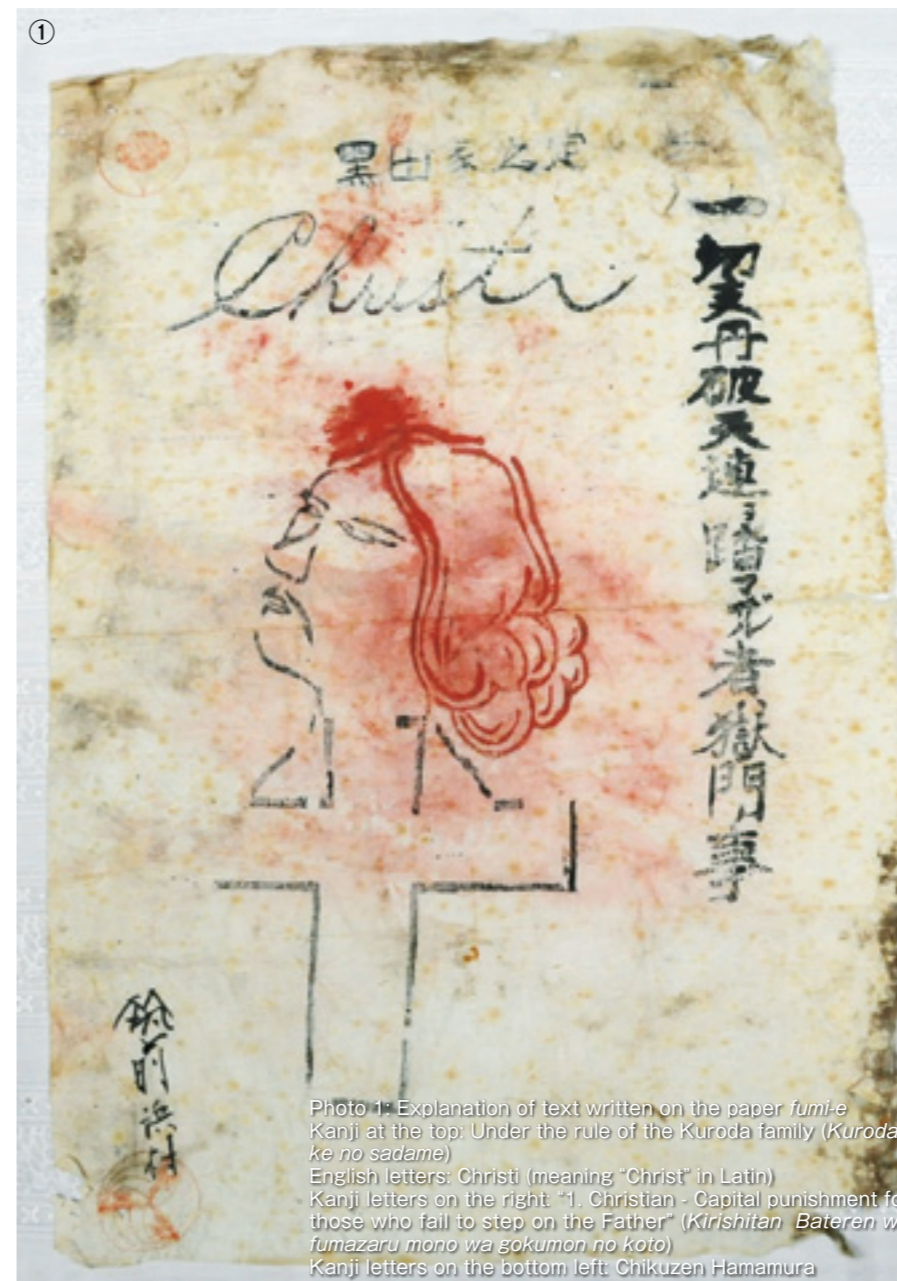 ①
黒田家之定
Christi
一切支丹破天連ヲ踏マザル者ハ獄門事
筑前浜村
Photo 1: Explanation of text written on the paper fumi-e
Kanji at the top: Under the rule of the Kuroda family (Kuroda
ke no sadame)
English letters: Christi (meaning “Christ” in Latin)
Kanji letters on the right: “1. Christian - Capital punishment fo
those who fail to step on the Father” (Kirishitan Bateren w
fumazaru mono wa gokumon no koto)
Kanji letters on the bottom left: Chikuzen Hamamura